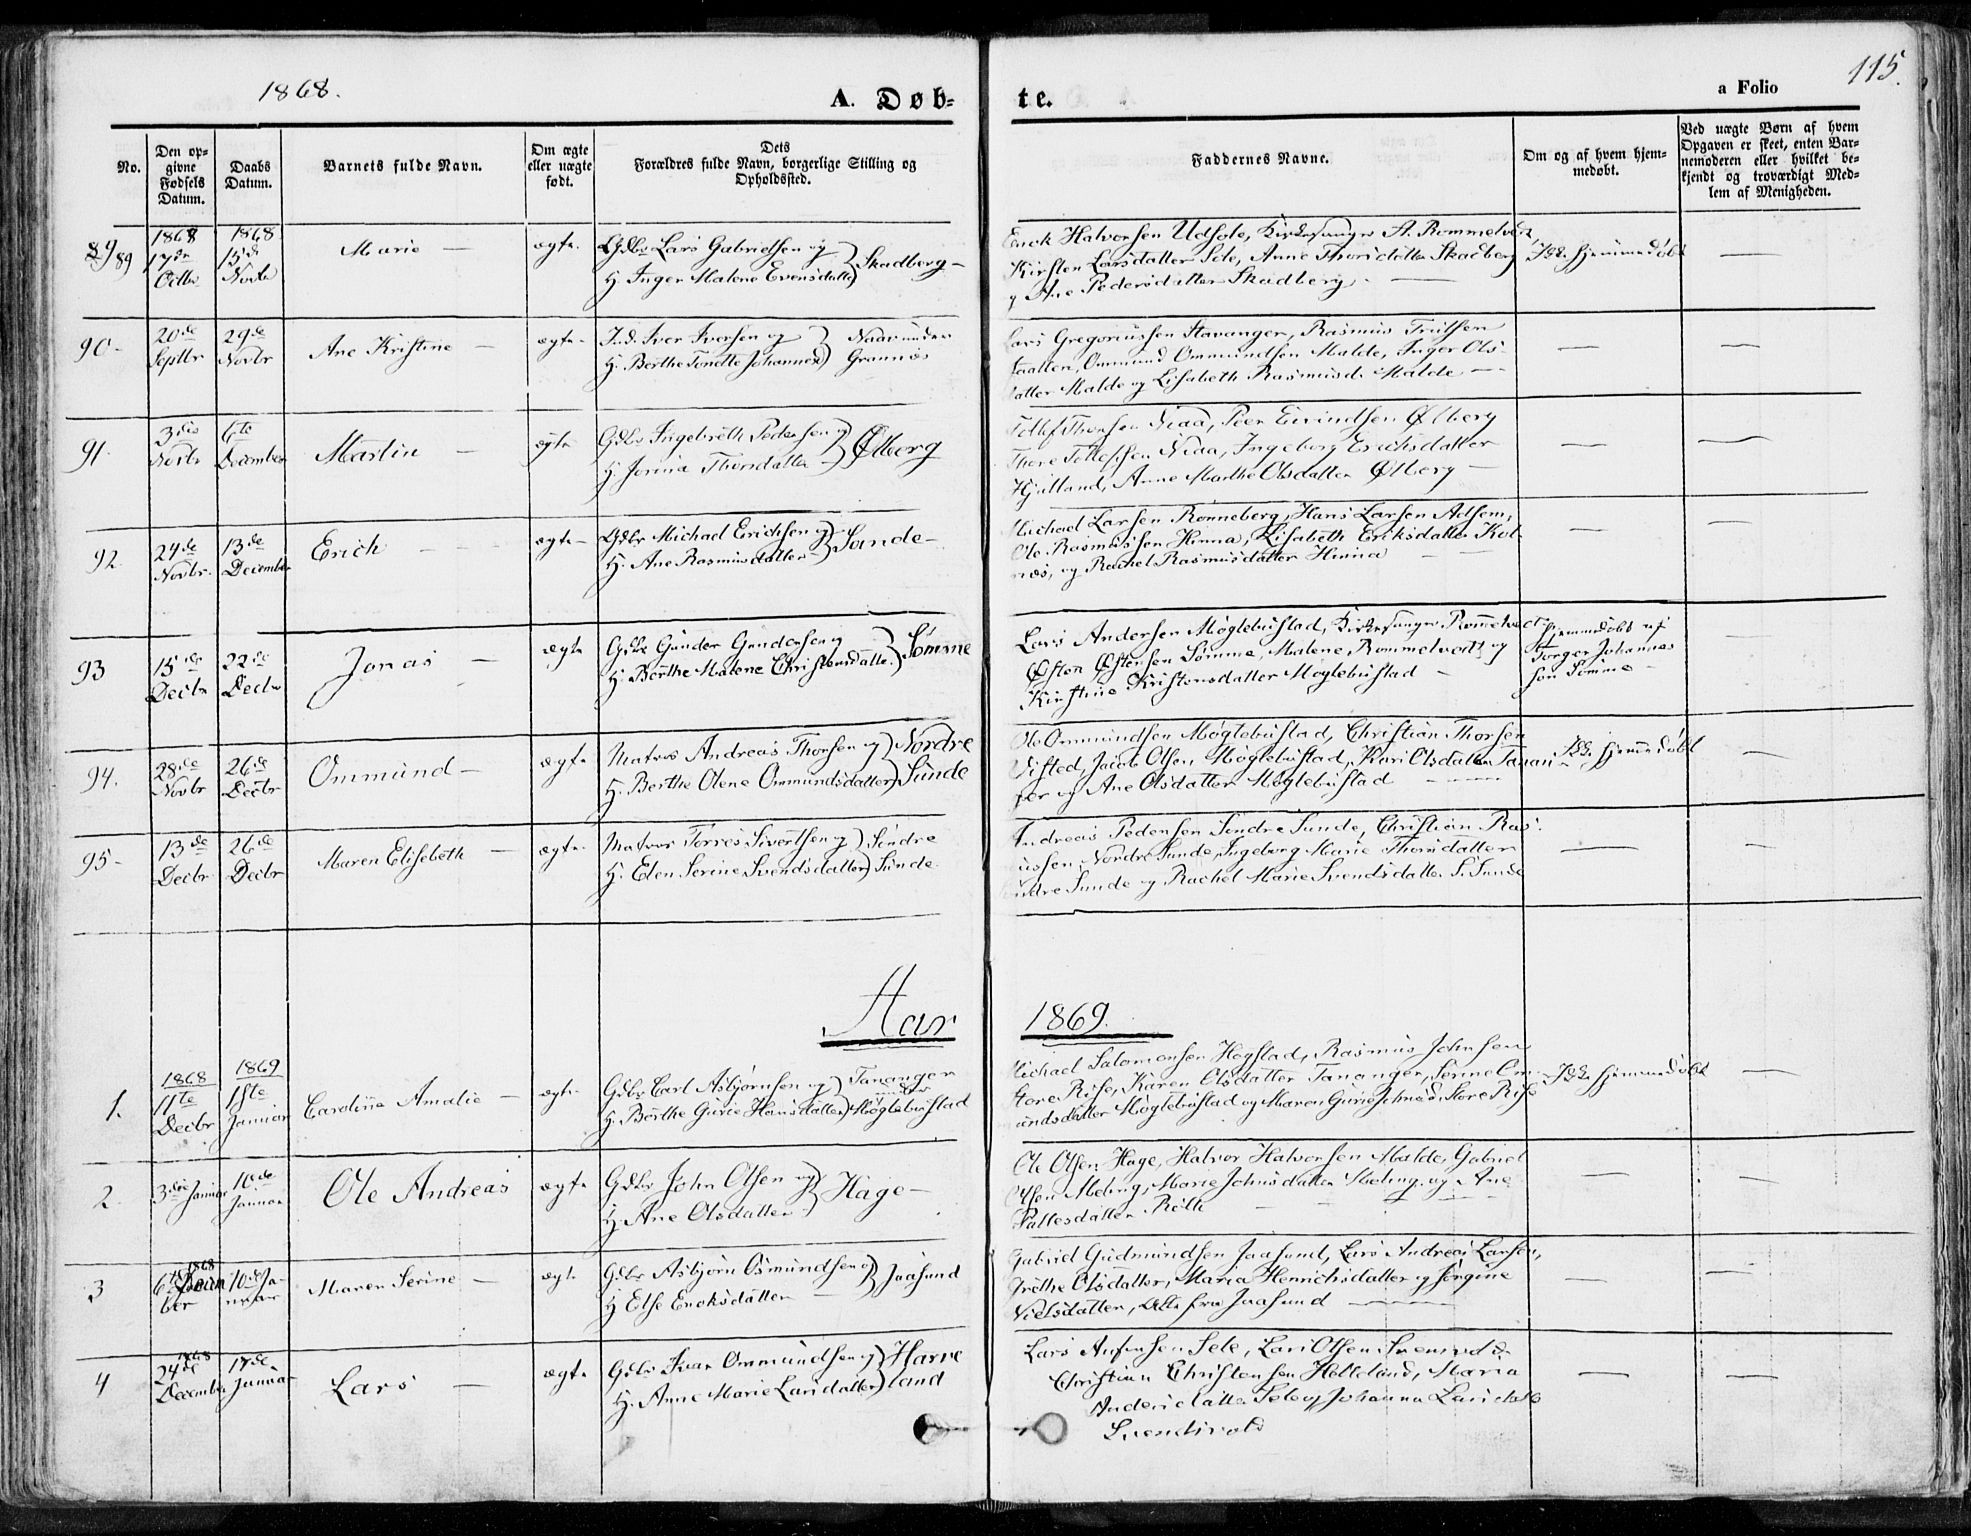 1868.
A. Døb-
te.
a Folio
115.
No.
Den op-
givne
Fødsels
Datum.
Daabs
Datum.
Barnets fulde Navn.
Om ægte
eller uægte
født.
Dets
Forældres fulde Navn, borgerlige Stilling og
Opholdssted.
Faddernes Navne.
Om og af hvem hjem-
medøbt.
Ved uægte Børn af hvem
Opgaven er skeet, enten Bar-
nemoderen eller hvilket be-
kjendt og troværdigt Med-
lem af Menigheden.
89
1868
17de
Octbr
1868
15de
Novbr
Marie —
ægte.
Gdbr Lars Gabrielsen og
H. Inger Malene Evensdatter
Skadberg —
Enok Halvorsen Udsole, Kirkesanger A. Rommetvedt,
Kirsten Larsdatter Sole, Anne Thorsdatter Skadberg
og Ane Pedersdatter Skadberg. —
Ikke hjemmedøbt
—
90 -
20de
Septbr
29de
Novbr
Ane Kristine —
ægte -
Ind. Iver Iversen og
H. Berthe Tendtle Johannesd
under
Grannes
Lars Gregoriussen Stavanger, Rasmus
Ommund Ommundsen Malde, Inger Ols-
datter Malde og Lisabeth Rasmusd. Malde —
—
—
91.
3die
Novbr
6te
December
Martin —
ægte
Gdbr Ingebreth Pedersen og
H. Jorina Thorsdatter
Ølberg
Tollef Thorsen Niaa, Peer Eivindsen Ølberg
Thore Tollefsen Niaa, Ingeborg Erichsdatter
Hjelland, Anne Marthe Olsdatter Ølberg —
—
—
92
24de
Novbr.
13de
December
Erich — -
ægte -
Gdbr Michael Erichsen og
H. Ane Rasmusdatter
Sande -
Michael Larsen Rønneberg, Hans Larsen Adsem,
Ole Rasmussen Hinna, Lisabeth Eriksdatter Kol-
næs, og Rachel Rasmusdatter Hinna —
—
—
93
15de
Decbr
22de
Decbr
Jonas —
ægte
Gdbr Gunder Gundersen og
H. Berthe Malene Christensdatter
Sømme
Lars Andersen Møglebustad, Kirkesanger Rommetvedt,
Østen Østensen Sømme, Malene Rommetvedt og
Kirstine Kristensdatter Møglebustad -
Hjemmedøbt af
Torger Johannes
sen Sømme -
—
94.
28de
Novbr
26de
Decbr
Ommund -
ægte
Matros Andreas Thorsen og
H. Berthe Olene Ommundsdatter
Nordre
Sunde
Ole Ommundsen Møglebustad, Christian Thorsen
Visted, Jacob Olsen Møglebustad, Kari Olsdatter Tanan
ger og Ane Olsdatter Møglebustad
Ikke hjemmedøbt
—
95 -
13de
Decbr
26de
Decbr
Maren Elisebeth —
ægte.
Matros Torres Sivertsen og
H. Elen Serine Svendsdatter
Søndre
Sunde.
Andreas Pedersen Søndre Sunde, Christian Ras-
ussen Nordre Sunde, Ingeborg Marie Thorsdatter
ndre Sunde og Rachel Marie Svendsdatter S. Sunde
—
—
Aar
1869.
1.
1868
11te
Decbr
1869
1ste
Januar
Caroline Amalie —
ægte
Gdbr Carl Asbjørnsen og
H. Berthe Gurie Hansdatter
Tananger
under
Møglebustad
Michael Salomonsen Hogstad, Rasmus Johnsen
Store Risе, Karen Olsdatter Tananger, Serine Om-
undsdatter Møglebustad og Maren Gurie Johnsd. Store Rise
Ikke hjemmedøbt
—
2
3die Januar
10de
Januar
Ole Andreas
ægte
Gdbr John Olsen og
H. Ane Olsdatter
Hage —
Ole Olsen Hage, Halvor Halvorsen Malde, Gabriel
Olsen Meling, Marie Johnsdatter Meling og Ane
—
—
3
1868
6te Decem
ber
10de Ja-
nuar
Maren Serine —
ægte
Gdbr Asbjørn Osmundsen og
H Else Enoksdatter
Jaasund
Gabriel Gudmundsen Jaasund, Lars Andreas Larsen,
Grethe Olsdatter, Maria Henrichsdatter og Jørgine
Nielsdatter, Alle fra Jaasund —
—
—
4
1868
24de
December
17de
Januar
Lars —
ægte
Gdbr Ivar Ommundsen og
H. Anne Marie Larsdatter
Harve
land
Lars Sele, Lars Olsen
Christian Christensen Helleland, Maria
Andersdatter Sele og Johanna Larsdatter
—
—